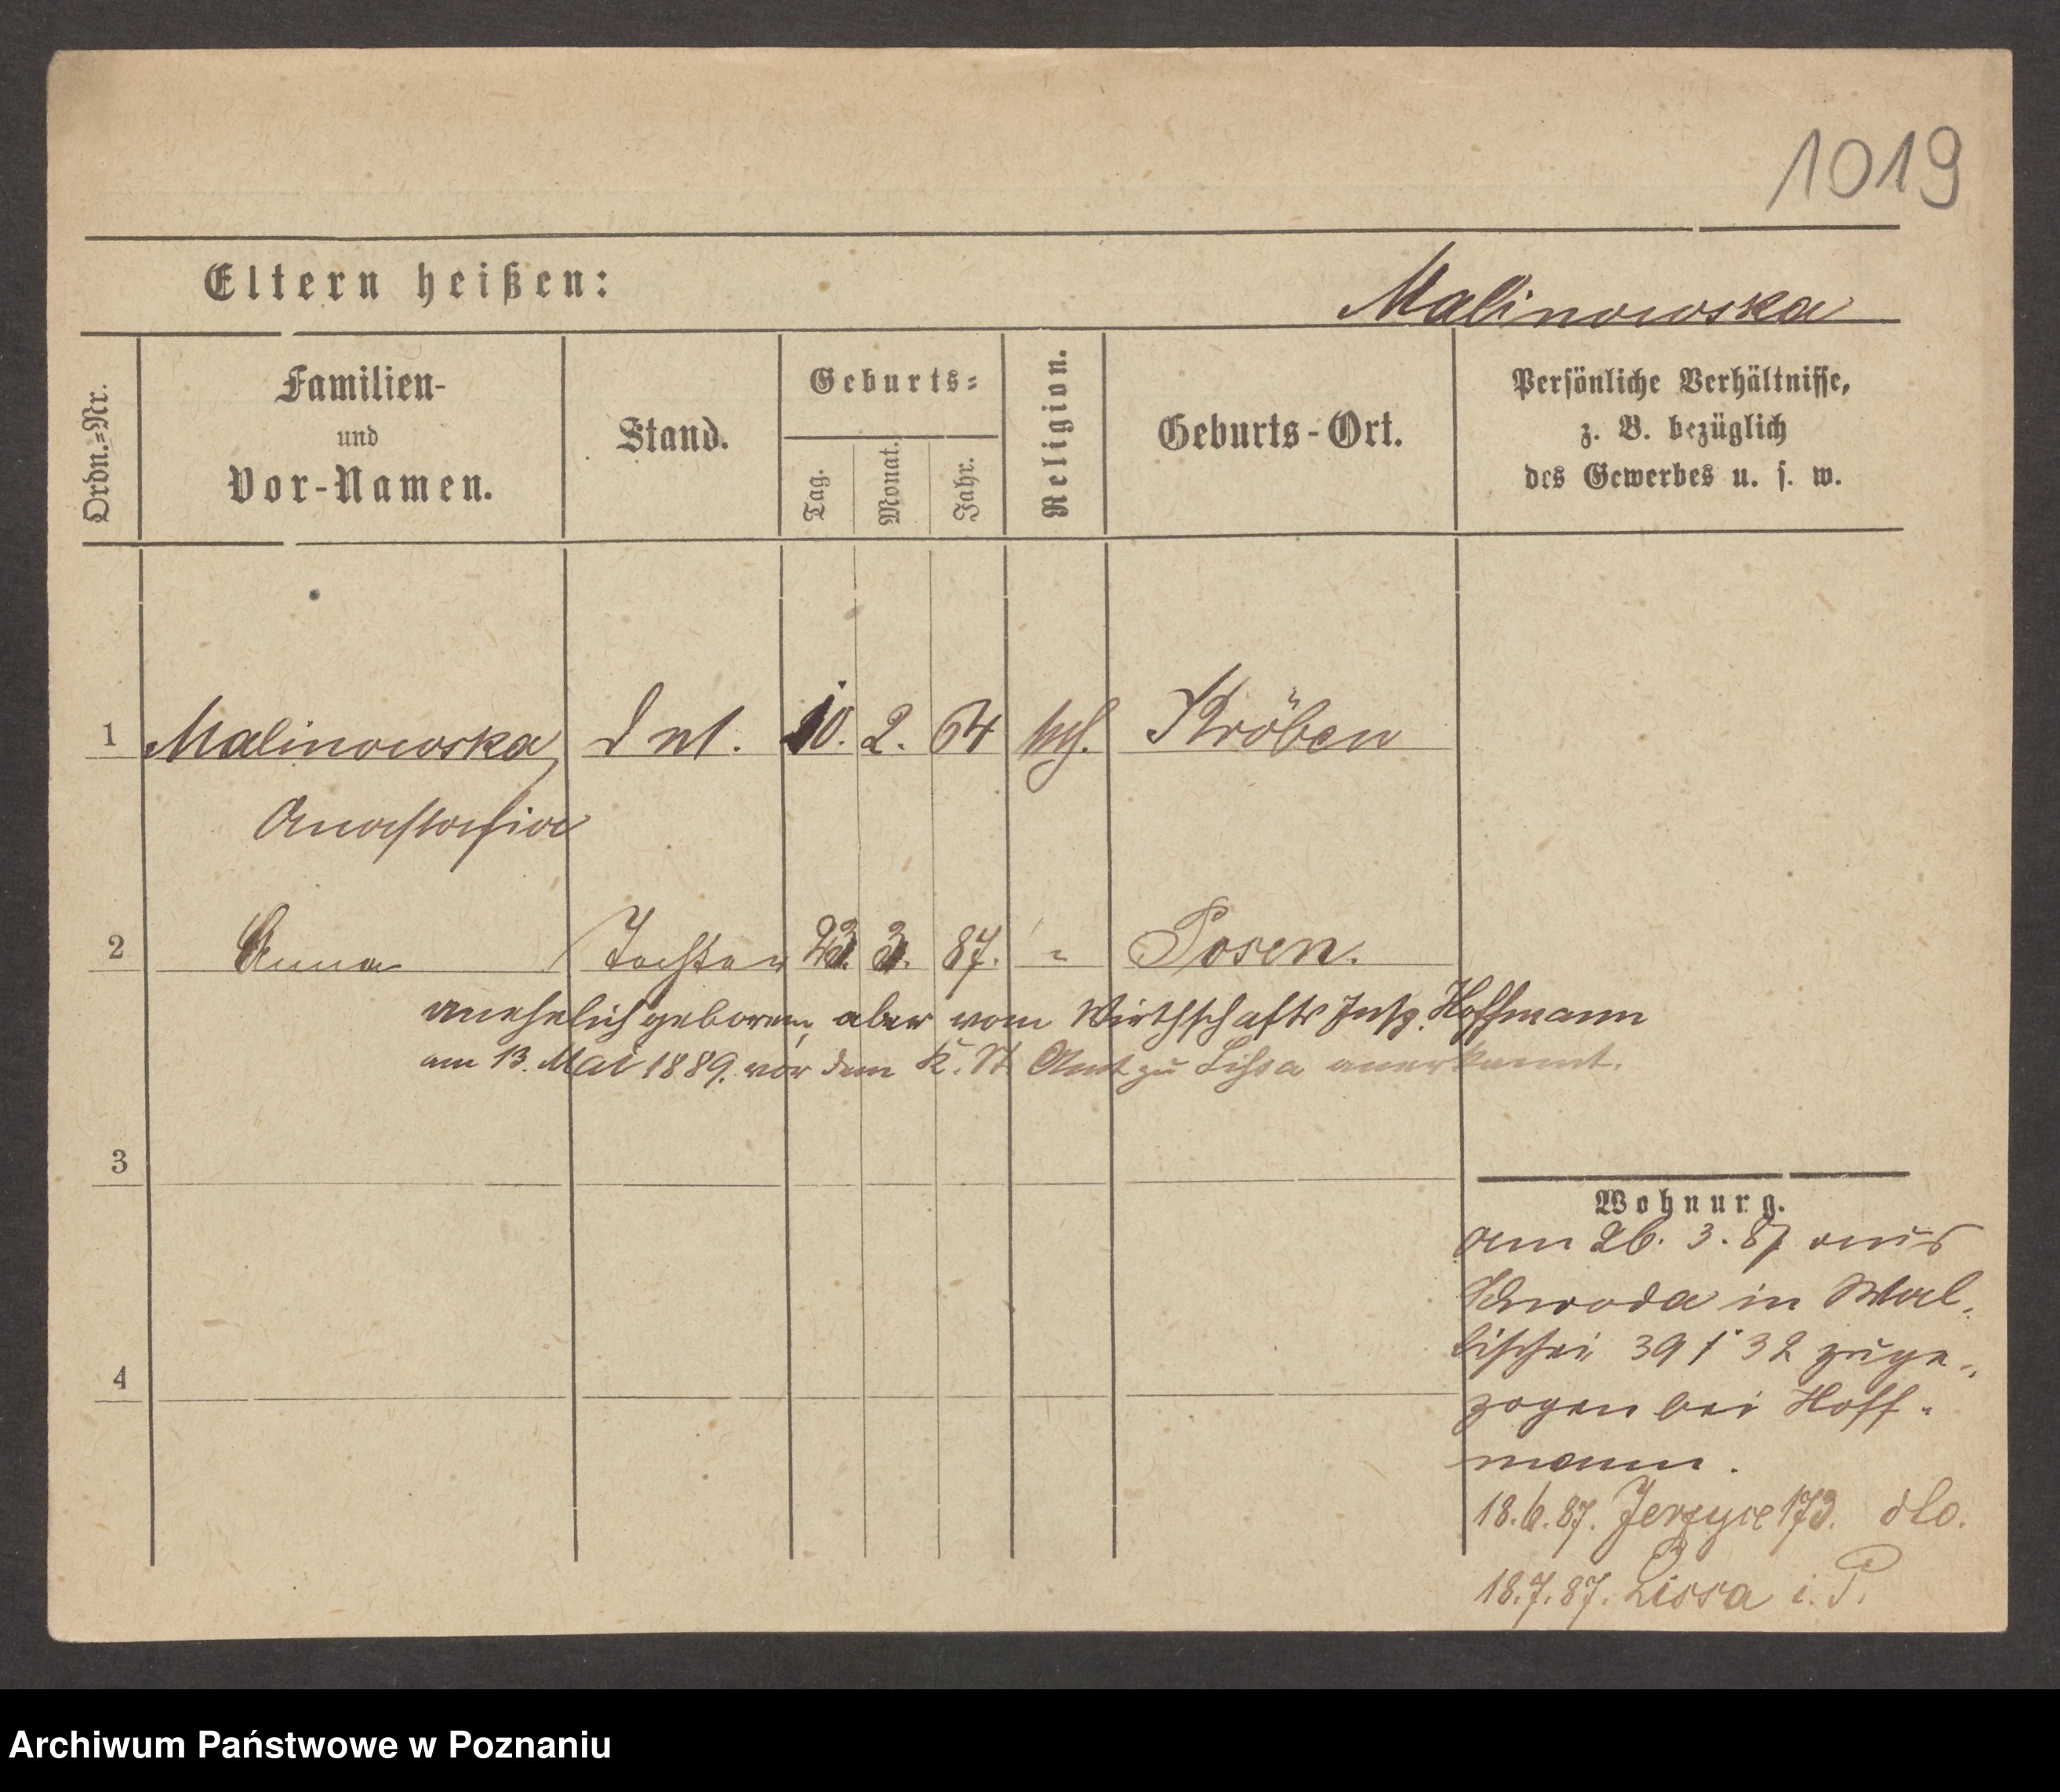 1019
Eltern heißen:
Malinowska
Ordn.=Nr.
Familien-
und
Vor-Namen.
Stand.
Geburts=
Tag.
Monat.
Jahr.
Religion.
Geburts-Ort.
Persönliche Verhältnisse,
z. B. bezüglich
des Gewerbes u. s. w.
1 Malinowska, 10. 2. 64 kth. Kröben
Anastasia
2 Anna Tochter 23. 3. 87. " Posen.
unehelich geboren, aber vom Wirthschafts Insp. Hoffmann
am 13. Mai 1889. vor dem K. St Amt zu Lissa anerkannt.
3
4
Wohnurg.
am 26. 3. 87 aus
in Wal-
lischei 39 / 32 zuge-
zogen bei Hoff-
mann.
18.6.87. Jerzyce 173. dto.
18.7.87. Lissa i. P.
Archiwum Państwowe w Poznaniu